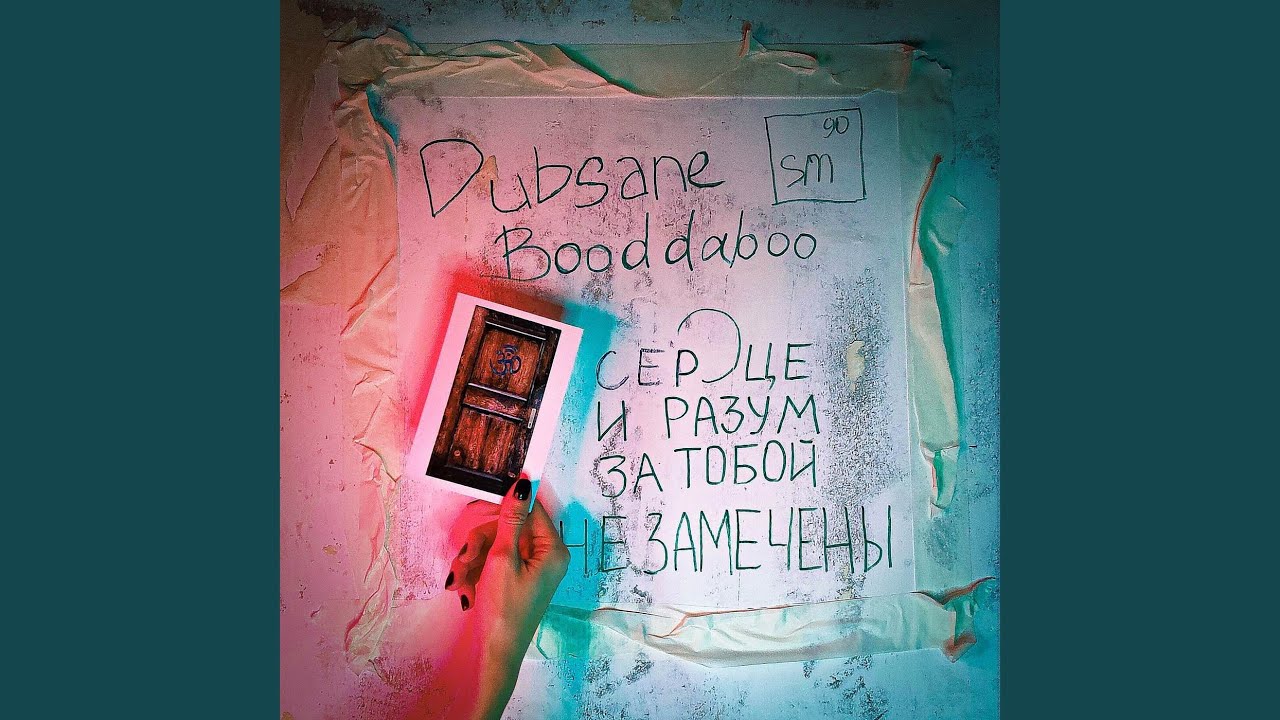 Dubsane
90
sm
Booddaboo
СЕРДЦЕ
И РАЗУМ
ЗА ТОБОЙ
НЕ ЗАМЕЧЕНЫ